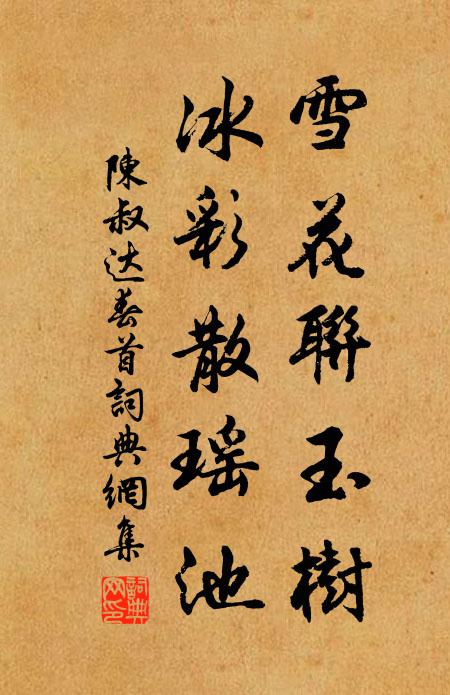 雪花聯玉樹
冰彩散瑶池
陳叔达春首詞典網集
詞典網印